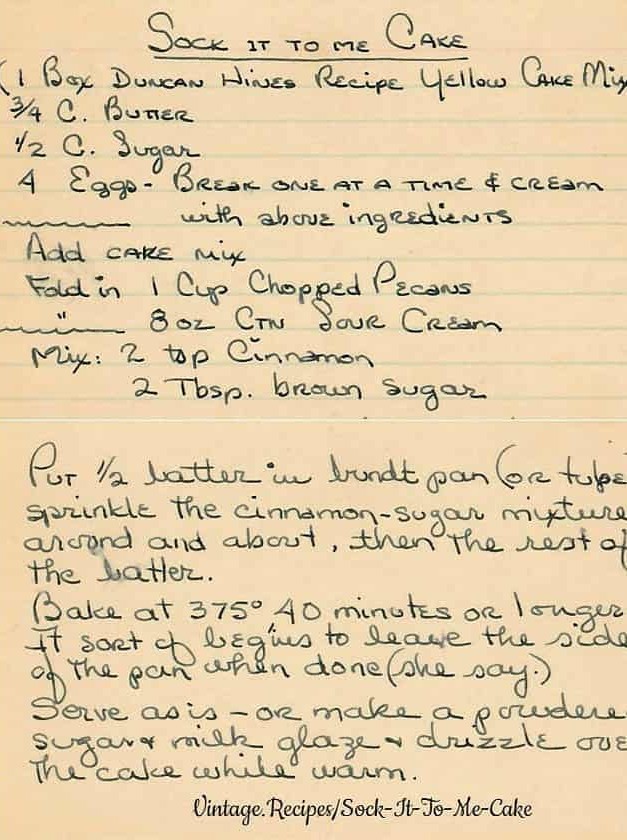 Sock it to me Cake
(1 Box Duncan Hines Recipe Yellow Cake Mix
3/4 C. Butter
1/2 C. Sugar
4 Eggs - Break one at a time & cream
with above ingredients
Add cake mix
Fold in 1 Cup Chopped Pecans
" 8 oz Ctn Sour Cream
Mix: 2 tsp Cinnamon
2 Tbsp. brown sugar
Put 1/2 batter in bundt pan (or tube
sprinkle the cinnamon-sugar mixture
around and about, then the rest of
the batter.
Bake at 375° 40 minutes or longer
It sort of begins to leave the side
of the pan when done (she say.)
Serve as is - or make a powdere
sugar & milk glaze & drizzle ove
the cake while warm.
Vintage.Recipes/Sock-It-To-Me-Cake